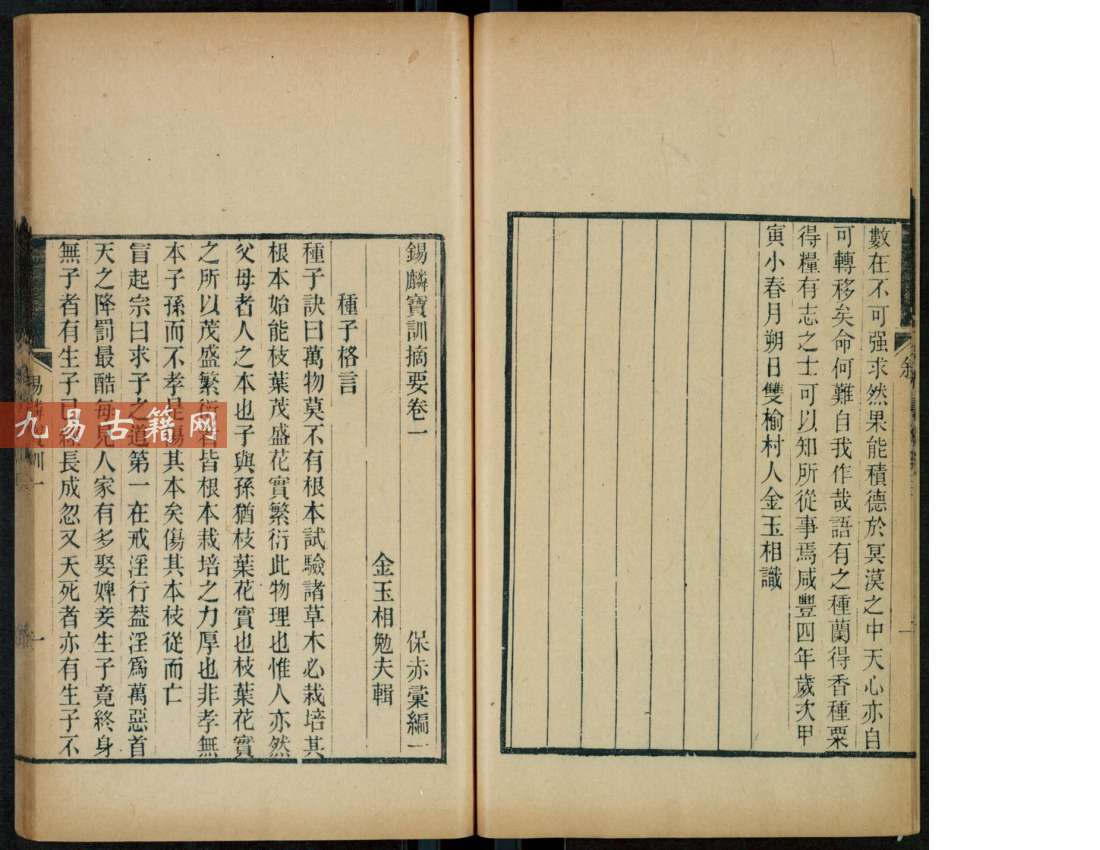 數在不可强求然果能積德於冥漠之中天心亦自
可轉移矣命何難自我作哉語有之種蘭得香種粟
得糧有志之士可以知所從事焉咸豐四年歲次甲
寅小春月朔日雙榆村人金玉相識
錫麟寶訓摘要卷一
保赤彙編一
金玉相勉夫輯
種子格言
種子訣曰萬物莫不有根本試驗諸草木必栽培其
根本始能枝葉茂盛花實繁衍此物理也惟人亦然
父母者人之本也子與孫猶枝葉花實也枝葉花實
之所以茂盛繁衍者皆根本栽培之力厚也非孝無
本子孫而不孝是傷其本矣傷其本枝從而亡
冒起宗曰求子之道第一在戒淫行葢淫爲萬惡首
天之降罰最酷每見人家有多娶婢妾生子竟終身
無子者有生子已經長成忽又夭死者亦有生子不
九易古籍网